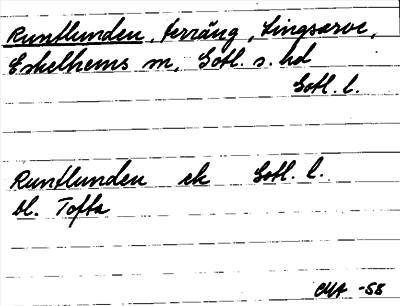 Runtlunden, terräng, Lingsarve,
Eskelhems sn, Gotl. s. hd
Gotl. l.
Runtlunden ek Gotl. l.
bl. Tofta
CMA -58